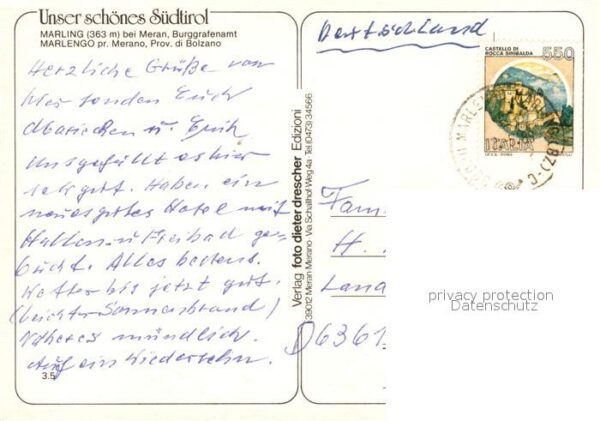 Unser schönes Südtirol
MARLING (363 m) bei Meran, Burggrafenamt
MARLENGO pr. Merano, Prov. di Bolzano
Herzliche Grüße von
hier senden Euch
u. Erich
Uns gefällt es hier
sehr gut. Haben ein
neues gutes Hotel mit
Hallen- u. Freibad ge-
bucht. Alles bestens.
Wetter bis jetzt gut.
(leichter Sonnenbrand)
Näheres mündlich.
Auf ein Wiedersehn.
3.5
Verlag foto dieter drescher Edizioni
39012 Meran Merano · Via Schallhof Weg 4a · Tel. (0473) 34566
Deutschland
CASTELLO DI
ROCCA SINIBALDA
550
ITALIA
I.P.Z.S. - ROMA
Fam
H.
Lana
D 6361
privacy protection
Datenschutz